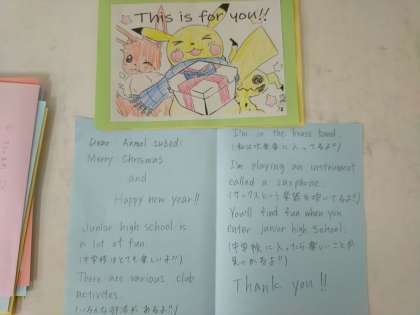 This is for you!!
Dear Anmol subedi
Merry Chrismas
and
Happy new year!!
Junior high school is
a lot of fun.
(中学校はとても楽しいよ!!)
There are various club
activites.
(いろんな部活があるよ!!)
I'm in the brass band.
(私は吹奏楽に入ってるよ!!)
I'm playing an instrument
called a saxphone.
(サックスという楽器を吹いてるよ!!)
You'll find fun when you
enter junior high school.
(中学校に入ったら楽しいことが
見つかるよ!!)
Thank you!!